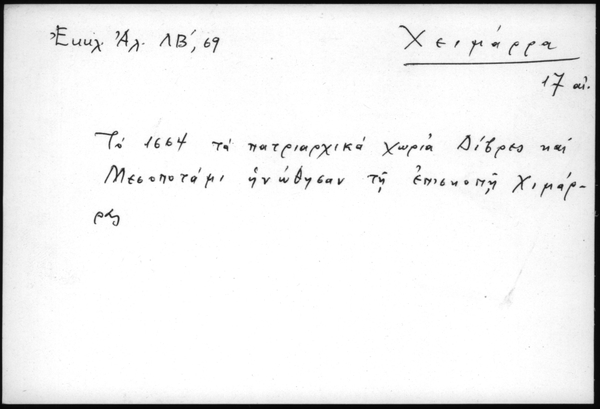 Ἐκκλ. Ἀλ. ΛΒ΄, 69
Χειμάρρα
17 αἰ.
Τὸ 1664 τὰ πατριαρχικὰ χωριὰ Δίβρες καὶ
Μεσοποτάμι ἡνώθησαν τῇ ἐπισκοπῇ Χιμάρ-
ρας